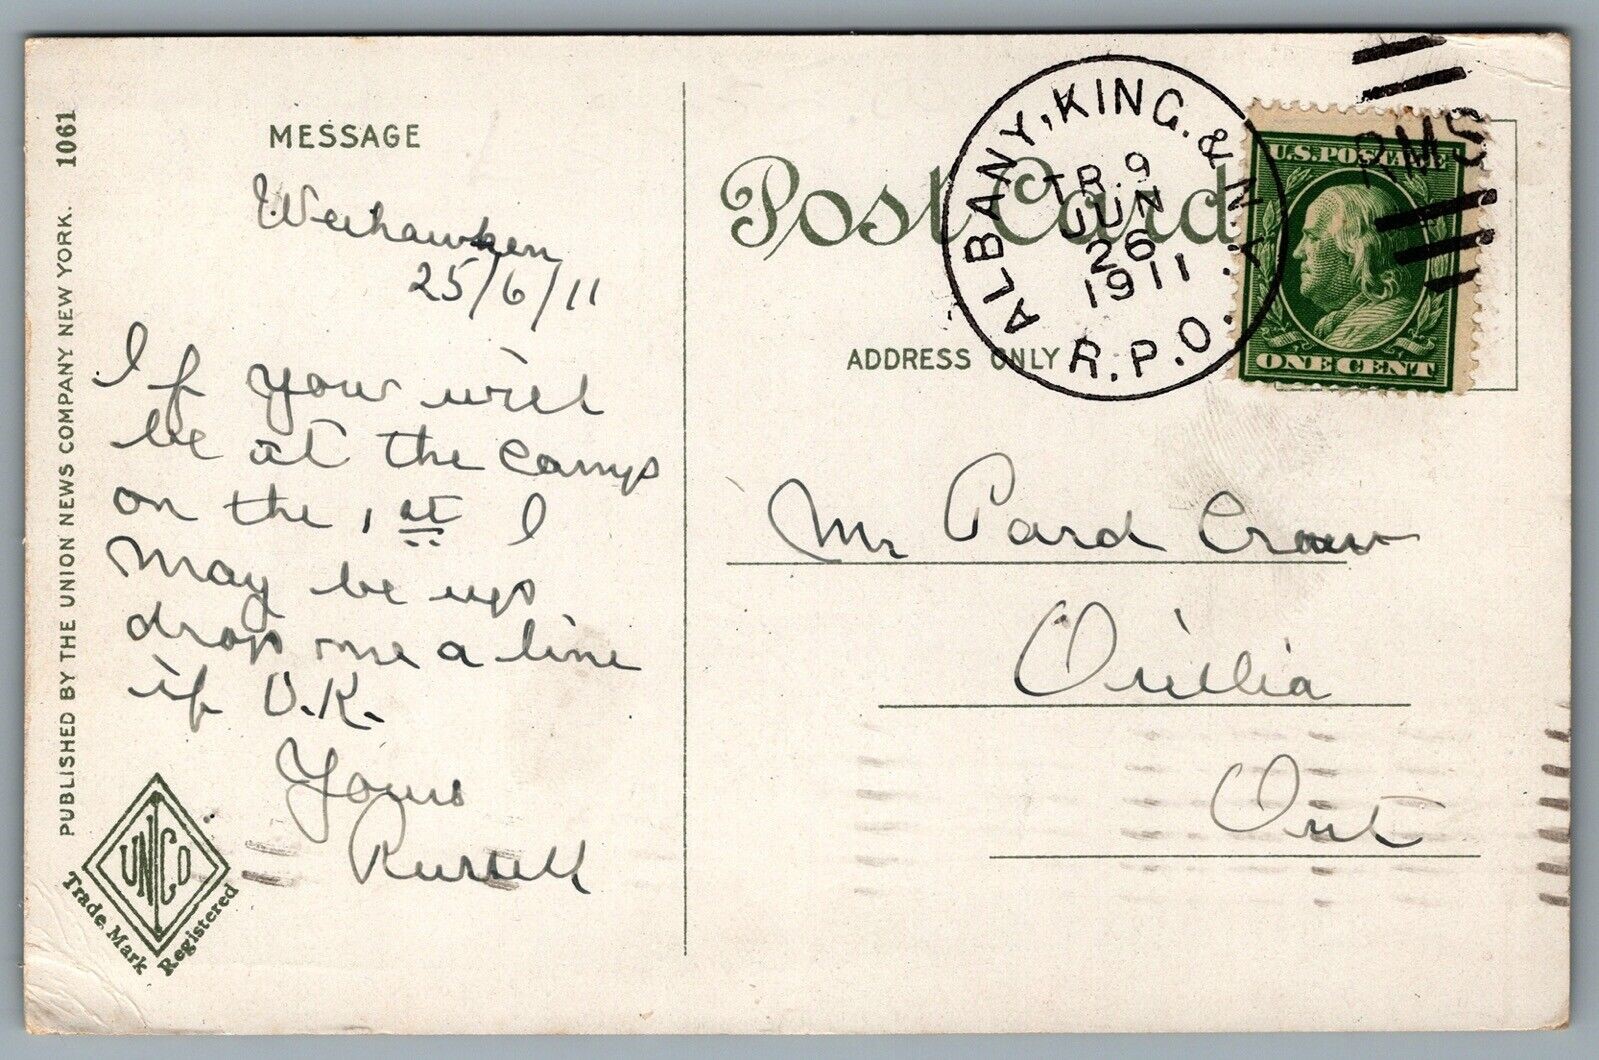 PUBLISHED BY THE UNION NEWS COMPANY NEW YORK. 1061
MESSAGE
Weehawken
25/6/11
If your will
be at the camp
on the 1st I
may be up
drop me a line
if O.K.
Yours
Russell
UNCO
Trade Mark Registered
Post Card
ADDRESS ONLY
ALBANY, KING. & N.Y.
TR. 9
JUN
26
1911
R.P.O.
RMS
U.S. POSTAGE
ONE CENT
Mr Pard Crow
Orillia
Ont